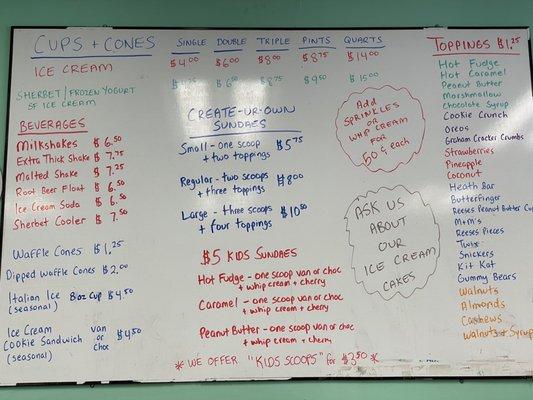 CUPS + CONES SINGLE DOUBLE TRIPLE PINTS QUARTS
ICE CREAM $4.00 $6.00 $8.00 $8.75 $14.00
SHERBET/FROZEN YOGURT
SF ICE CREAM $9.50 $15.00
BEVERAGES
Milkshakes $6.50
Extra Thick Shake $7.75
Malted Shake $7.25
Root Beer Float $6.50
Ice Cream Soda $6.50
Sherbet Cooler $7.50
Waffle Cones $1.25
Dipped Waffle Cones $2.00
Italian Ice 8oz Cup $4.50
(seasonal)
Ice Cream
Cookie Sandwich van or choc $4.50
(seasonal)
CREATE-UR-OWN
SUNDAES
Small - one scoop $5.75
+ two toppings
Regular - two scoops $8.00
+ three toppings
Large - three scoops $10.50
+ four toppings
$5 KIDS SUNDAES
Hot Fudge - one scoop van or choc
+ whip cream + cherry
Caramel - one scoop van or choc
+ whip cream + cherry
Peanut Butter - one scoop van or choc
+ whip cream + cherry
*WE OFFER "KIDS SCOOPS" for $3.50*
Add
SPRINKLES
or
WHIP CREAM
FOR
50¢ each
ASK US
ABOUT
OUR
ICE CREAM
CAKES
TOPPINGS $1.25
Hot Fudge
Hot Caramel
Peanut Butter
Marshmallow
Chocolate Syrup
Cookie Crunch
Oreos
Graham Cracker Crumbs
Strawberries
Pineapple
Coconut
Heath Bar
Butterfinger
Reeses Peanut Butter Cup
M+M's
Reeses Pieces
Twix
Snickers
Kit Kat
Gummy Bears
Walnuts
Almonds
Cashews
Walnuts + Syrup